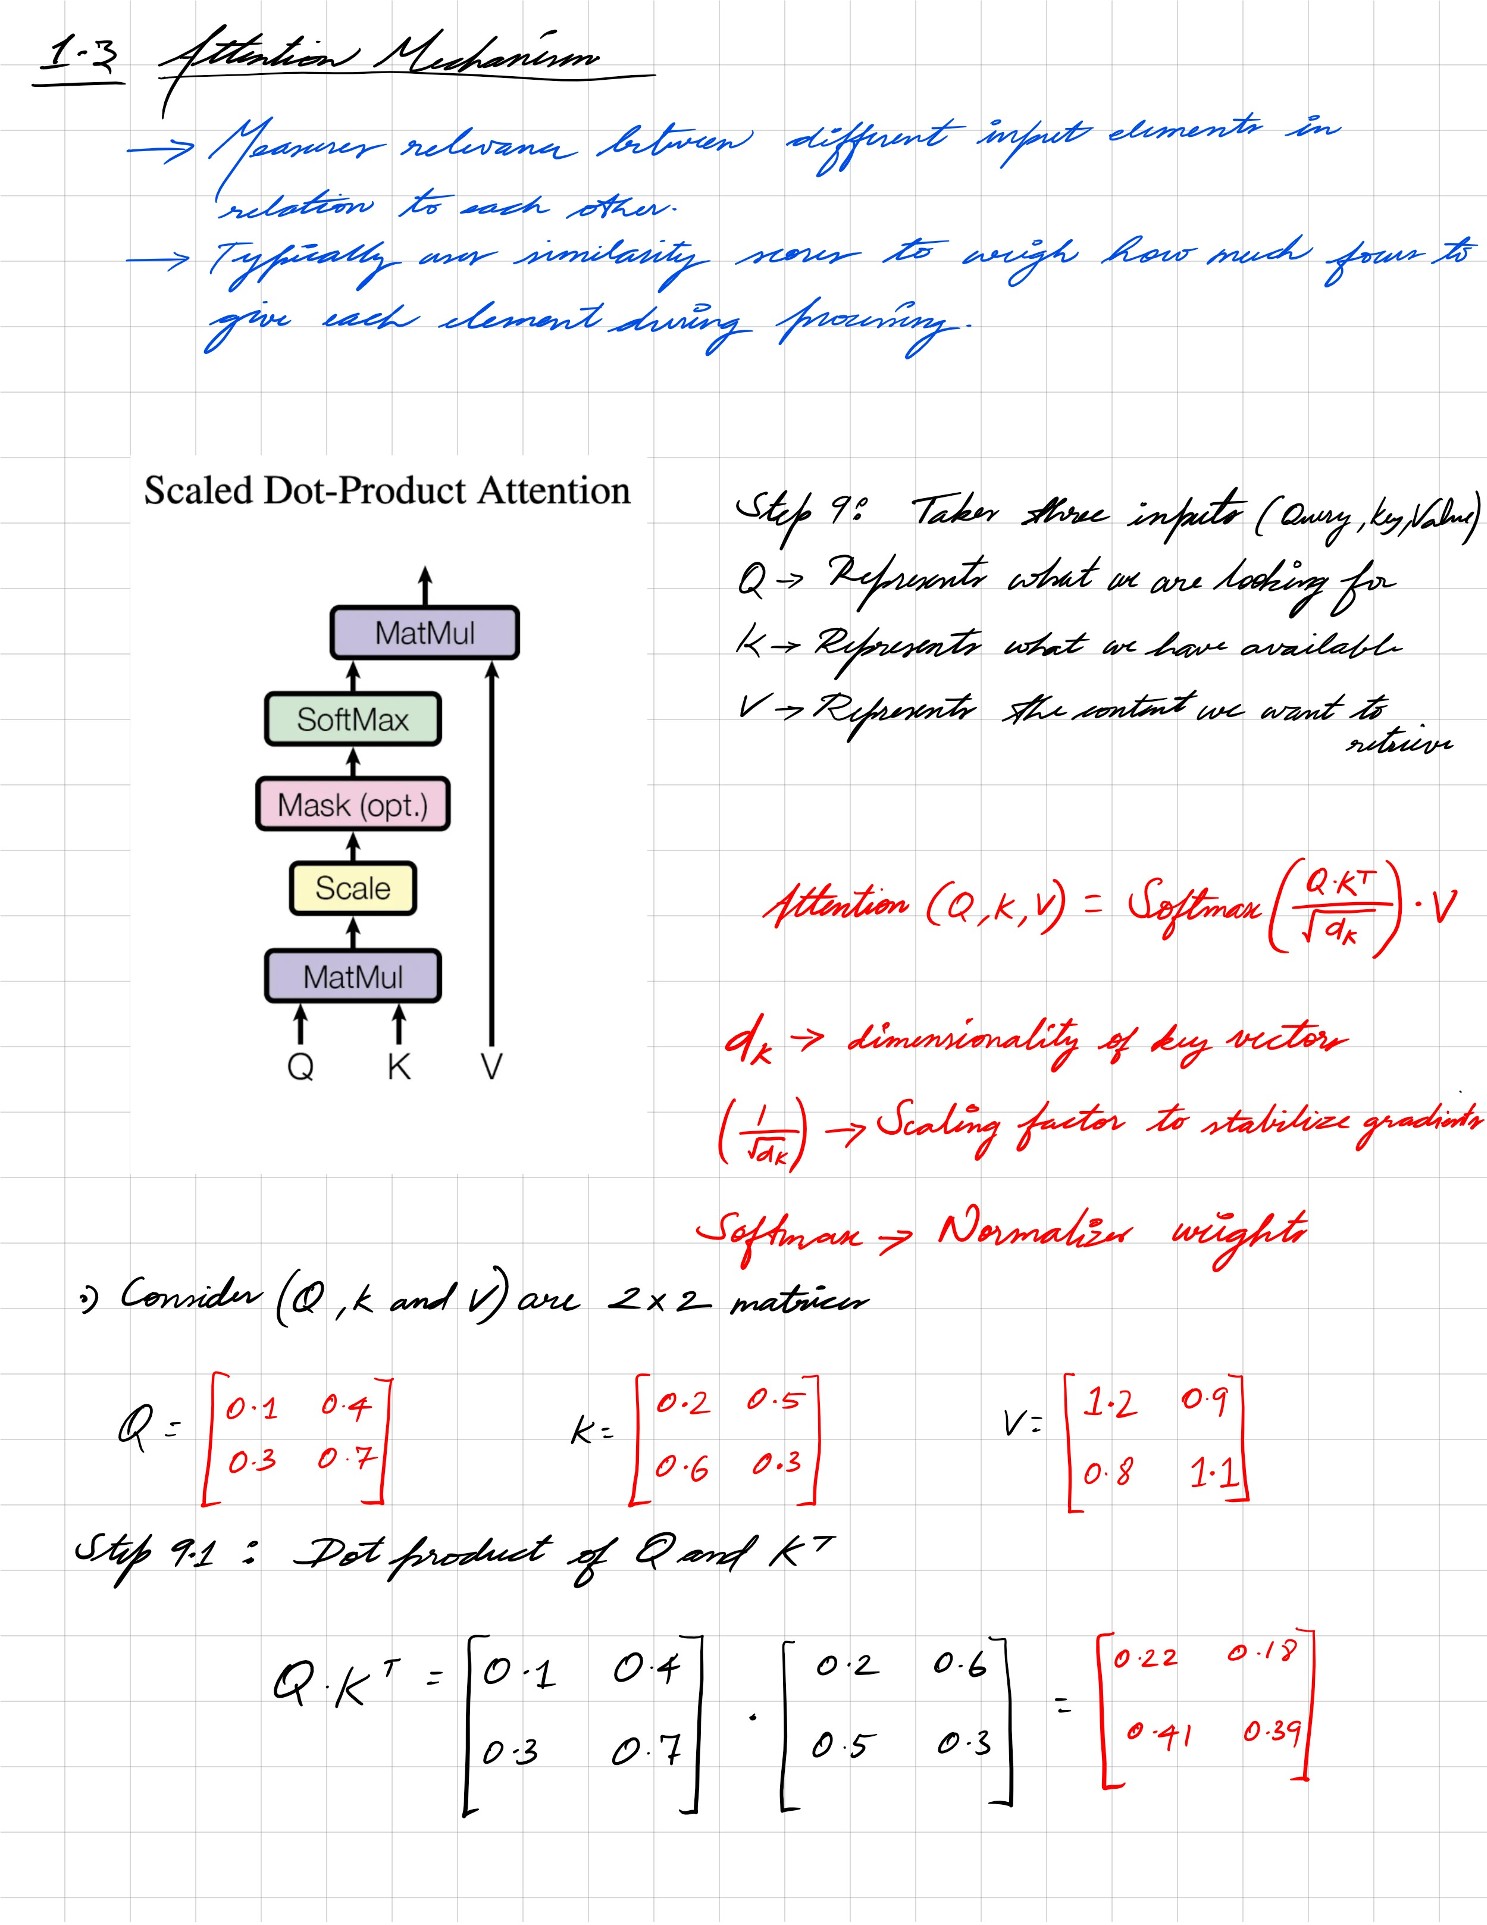 1.3 Attention Mechanism
→ Measures relevance between different input elements in
relation to each other.
→ Typically uses similarity scores to weigh how much focus to
give each element during processing.
Scaled Dot-Product Attention
MatMul
SoftMax
Mask (opt.)
Scale
MatMul
Q K V
Step 9: Takes three inputs (Query, key, Value)
Q → Represents what we are looking for
K → Represents what we have available
V → Represents the content we want to
retrieve
Attention (Q, K, V) = Softmax (Q·K^T / √d_K) · V
d_K → dimensionality of key vectors
(1/√d_K) → Scaling factor to stabilize gradients
Softmax → Normalizes weights
:) Consider (Q, K and V) are 2x2 matrices
Q = [0.1 0.4
0.3 0.7]
K = [0.2 0.5
0.6 0.3]
V = [1.2 0.9
0.8 1.1]
Step 9.1 : Dot product of Q and K^T
Q·K^T = [0.1 0.4
0.3 0.7] · [0.2 0.6
0.5 0.3] = [0.22 0.18
0.41 0.39]